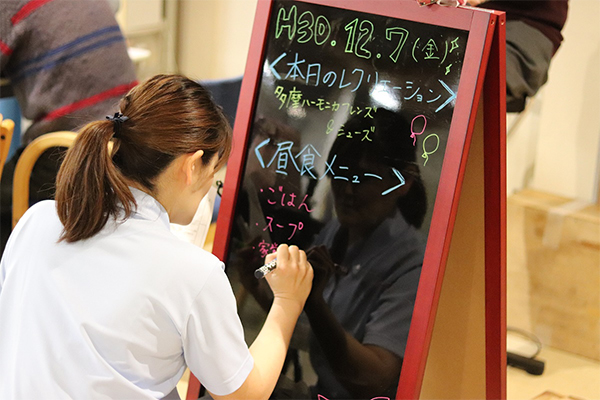 H30.12.7(金)
<本日のレクリエーション>
多摩ハーモニカフレンズ
&ミューズ
<昼食メニュー>
・ごはん
・スープ